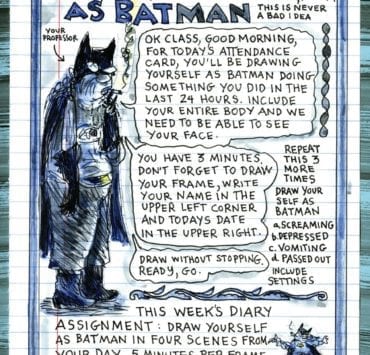 AS BATMAN
THIS IS NEVER
A BAD IDEA
YOUR
PROFESSOR
OK CLASS, GOOD MORNING,
FOR TODAY'S ATTENDANCE
CARD, YOU'LL BE DRAWING
YOURSELF AS BATMAN DOING
SOMETHING YOU DID IN THE
LAST 24 HOURS. INCLUDE
YOUR ENTIRE BODY AND WE
NEED TO BE ABLE TO SEE
YOUR FACE.
YOU HAVE 3 MINUTES.
DON'T FORGET TO DRAW
YOUR FRAME, WRITE
YOUR NAME IN THE
UPPER LEFT CORNER
AND TODAYS DATE
IN THE UPPER RIGHT.
DRAW WITHOUT STOPPING.
READY, GO.
REPEAT
THIS 3
MORE
TIMES
DRAW YOUR
SELF AS
BATMAN
a. SCREAMING
b. DEPRESSED
c. VOMITING
d. PASSED OUT
INCLUDE
SETTINGS
THIS WEEK'S DIARY
ASSIGNMENT: DRAW YOURSELF
AS BATMAN IN FOUR SCENES FROM
YOUR DAY. 5 MINUTES PER FRAME